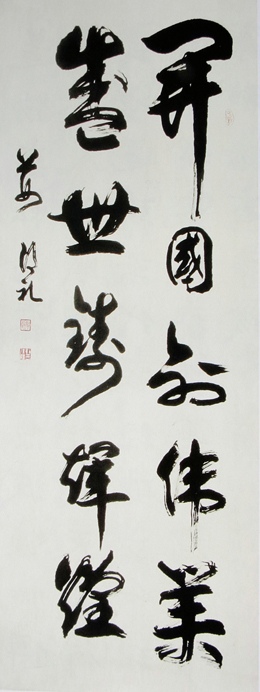 開國創偉業
盛世鑄輝煌